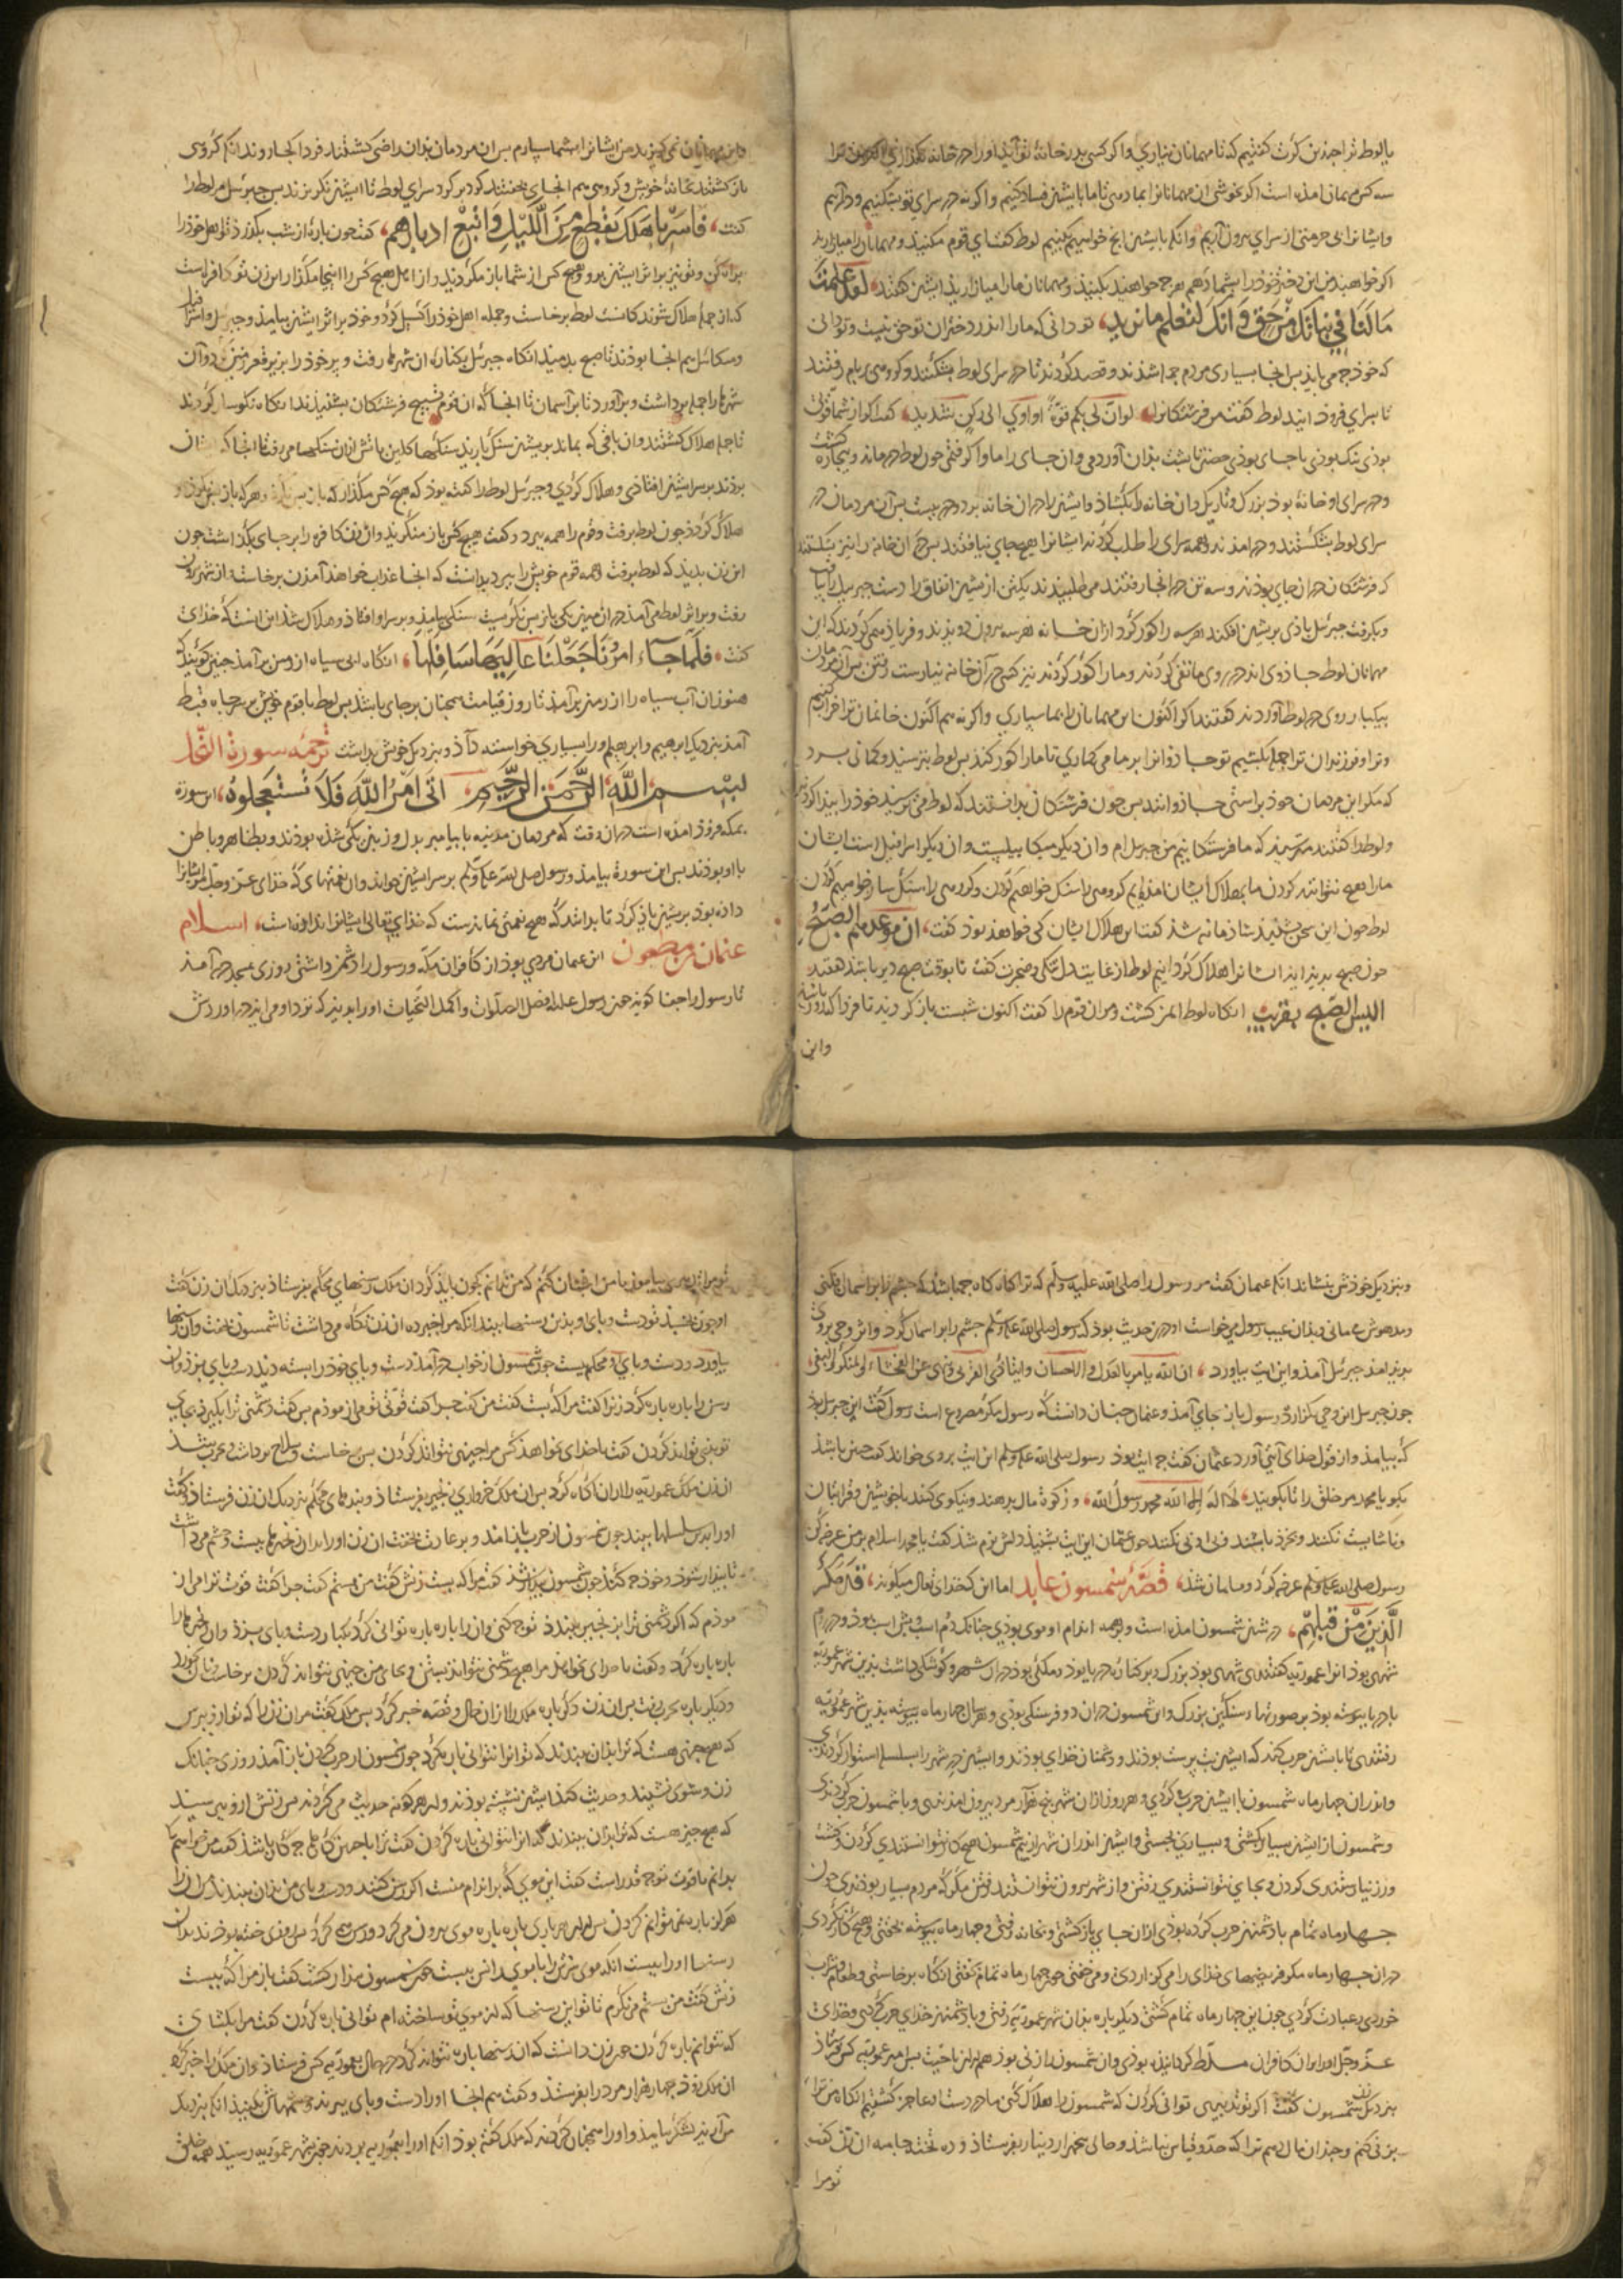 یا لوط ترا چندین کرت کفتیم که تا مهمانان نیاری واکر کسی بدر خانهٔ تو آید اورا در خانه نکذاری
سه کس مهمان آمده است اکر بخوشی ان مهمانانرا بما دهی تا ما با ایشن فساد کنیم واکرنه در سرای تو بشکنیم ودرآییم
وایشانرا بی حرمتی از سرای بیرون آریم وانکه با ایشن انج خواهیم بکنیم لوط کفت ای قوم مکنید ومهمانان را میازارید
اکر خواهید من این دختر خودرا بشما دهم هرچه خواهید بکنید ومهمانان مارا میازارید ایشن کفتند لقد علمت
مَا لَنَا فِي بَنَاتِكَ مِنْ حَقٍّ وَاِنَّكَ لَتَعْلَمُ مَا نُرِيد، تو دانی که مارا اندر دختران تو حق نیست وتو دانی
که خود چه می باید بس انجا بسیاری مردم جمع شدند وقصد کردند تا در سرای لوط بشکنند وکروهی بر بام رفتند
تا بسرای فرود ایند لوط کفت من فرشتکانرا لو ان لی بکم قوة او اوی الی رکن شدید، کفت اکر از شما قوتی
بودی نیک بودی یا جای بودی حصنی تا بشت بدان آوردمی وان جای را ماوا کرفتمی چون لوط درماند وبیچاره کشت
ودر سرای او خانهٔ بود بزرک وتاریک دران خانه را بکشاد وایشنرا دران خانه برد ودر ببست بس آن مردمان در
سرای لوط بشکستند ودر امدند وهمه سرای را طلب کردند ایشانرا هیچ جای نیافتند بس در آن خانه را نیز بشکستند
که فرشتکان دران جای بودند وسه تن در انجا رفتند می طلبیدند یکتن از ایشن اتفاق را دست جبریل را بیافت
وبکرفت جبرئیل بادی بریشن افکند هر سه را کور کرد ازان خانه هر سه بیرون دویدند وفریاد همی کردند که این
مهمانان لوط جادوی اند در روی ما تفی کردند ومارا کور کردند نیز کسی در آن خانه نیارست رفتن بس آن مردمان
بیکبار روی در لوط آوردند کفتند اکر اکنون این مهمانان را بما سپاری واکرنه هم اکنون خانمان ترا خراب کنیم
وترا وفرزندان ترا جمله بکشیم تو جادوانرا بر ما می کماری تا مارا کور کنند بس لوط بترسید وکمانی برد
که مکر این مردمان خود براستی جادوانند بس چون فرشتکان بدانستند که لوط می ترسید خودرا بیدا کردند
ولوط را کفتند مترسید که ما فرستکانیم من جبریلم وان دیکر میکاییلست وان دیکر اسرافیل است ایشان
مارا هیچ نتوانند کردن ما بهلاک ایشان امده‌ایم کروهی را سنک خواهیم کردن وکروهی را سنکسار خواهیم کردن
لوط چون این سخن بشنید شادمانه شد کفتا بس هلاک ایشان کی خواهد بود کفت، ان موعدهم الصبح
چون صبح بدید اید ایشانرا هلاک کردانیم لوط از غایت دل تنکی وضجرت کفت تا بوقت صبح دیر باشد کفتند
الیس الصبح بقریب انکاه لوط ایمن کشت ومران قوم را کفت اکنون شبست باز کردید تا فردا که روز باشد
واین
واین مهمانان نمی کریزند من ایشانرا بشما سپارم بس ان مردمان بدان راضی کشتند فردا انجا روند انکه کروهی
باز کشتند بخانهٔ خویش وکروهی هم انجای بخفتند کرد بر کرد سرای لوط تا ایشن نکریزند بس جبرئیل مر لوط را
کفت، فَاَسْرِ بِاَهْلِكَ بِقِطْعٍ مِنَ الَّليْلِ وَاتَّبِعْ ادبارهم، کفت چون باره از شب بکذرد تو اهل خودرا
براه کن وتو نیز بر اثر ایشن برو وهیچ کس از شما باز مکردید واز اهل هیچ کس را اینجا مکذار این زن تو کافرست
که از جمله هلاک شوند کانست لوط برخاست وجمله اهل خودرا کسیل کرد وخود بر اثر ایشن بیامد وجبرئیل واسرافیل
ومیکائیل هم انجا بودند تا صبح بدمید انکاه جبرئیل بکناره ان شهرها رفت وپر خودرا بزیر قعر زمین برد وآن
شهرها را جمله برداشت وبرآورد تا بر آسمان تا انجا که ان قوم تسبیح فرشتکان بشنیدند انکاه نکوسار کردند
تا جمله هلاک کشتند وان باقی که بماند بریشن سنک بارید سنکهاء کلین باتش ازان سنکها می رفت تا انجا که ایشان
بودند بر سر ایشن افتادی وهلاک کردی وجبرئیل لوط را کفته بود که هیچ کس مکذار که باز پس نکرد وهرکه باز پس نکرد او
هلاک کردد چون لوط برفت وقوم را همه ببرد وکفت هیچ کس باز منکرید وان زن کافره را بر جای بکذاشت چون
این زن بدید که لوط برفت وهمه قوم خویش را ببرد بدانست که انجا عذاب خواهد آمدن برخاست واز شهر بیرون
رفت وبر اثر لوط می آمد دران میان یکی باز پس نکریست سنکی بیامد وبر سر او افتاد وهلاک شد این است که خدای
کفت، فَلَمَّا جَاءَ اَمْرُنَا جَعَلْنَا عَالِيَهَا سَافِلَهَا، انکاه ابی سیاه از زمین برآمد چنین کویند که
هنوز ان آب سیاه را از زمین برآمد تا روز قیامت همچنان بر جای باشد بس لوط با قوم خویش
آمد بنزدیک ابرهیم وابرهیم اورا بسیاری خواسته داد وبنزدیک خویش بداشت ترجمه سورة النحل
بِسْمِ اللَّهِ الرَّحْمَنِ الرَّحِيمِ اَتَى اَمْرُ اللَّهِ فَلَا تَسْتَعْجِلُوهُ، این سورة
بمکه فرود امده است دران وقت که مردمان مدینه با پیامبر بدل وزبان یکی شده بودند وبظاهر وباطن
با او بودند بس این سورة بیامد ورسول صلی الله علیه وسلم بر سر ایشن خواند وان نعمتهای که خدای عز وجل مر ایشانرا
داده بود بریشن یاد کرد تا بدانند که هیچ نعمتی نماندست که خدای تعالی ایشانرا نداده است، اسلام
عثمان بن مظعون این عثمان مردی بود از کافران مکه ورسول را دشمن داشتی روزی بمسجد در آمد
تا رسول را جفا کوید چون رسول علیه افضل الصلوات واکمل التحیات اورا بدید که نزد او می اید در اوردش
وبنزدیک خودش بنشاند انکه عثمان کفت مر رسول را صلی الله علیه وسلم که ترا کاه کاه چه باشد که چشم را بر اسمان فکنی
ومدهوش بمانی وبدان عیب رسول می خواست او درین حدیث بود که رسول صلی الله علیه وسلم چشم را بر اسمان کرد واثر وحی بروی
بدید امد جبرئیل آمد واین ایت بیاورد، ان الله یامر بالعدل والاحسان وایتائ ذی القربی وینهی عن الفحشاء والمنکر والبغی
چون جبرئیل این وحی بکزارد ورسول باز جای آمد وعثمان چنان دانست که رسول مکر مصروع است رسول کفت این جبریل بود
که بیامد واز قول خدای آیتی آورد عثمان کفت چه ایت بود رسول صلی الله علیه وسلم این ایت بروی خواند کفت چنین باشد
بکو یا محمد مر خلق را تا بکویند، لا اله الا الله محمد رسول الله، وزکوة مال بدهند ونیکوی کنند با خویشن وقرابتان
وناشایست نکنند وبخرد باشند وبی ادبی نکنند چون عثمان این ایت بشنید دلش نرم شد کفت یا محمد اسلام بر من عرضه کن
رسول صلی الله علیه وسلم عرضه کرد ومسلمان شد، قصهٔ شمسون عابد اما این که خدای تعالی میکوید، قَدْ مَكَرَ
الَّذِينَ مِنْ قَبْلِهِمْ، در شان شمسون امده است وبر همه اندام او موی بودی چنانک دم اسب وبش اسب بود ودر روم
شهری بود انرا عموریه کفتندی شهری بود بزرک وبر کناره دریا بود وملکی بود دران شهر وکوشکی داشت بدین شهر عموریه
با دریا پیوسته بود بر صورتهاء سنکین بزرک واین شمسون دران دو فرسنکی بودی وهر سال چهار ماه پیوسته بدین شهر عموریه
رفتندی تا با ایشن حرب کند که ایشن بت پرست بودند ودشمنان خدای بودند وایشن در شهر را بسلسله استوار کردندی
واندران چهار ماه شمسون با ایشن حرب کردی وهر روز ازان شهر پنج هزار مرد بیرون امدندی وبا شمسون حرب کردندی
وشمسون از ایشن بسیار بکشتی وبسیاری بخستی وایشن اندران شهر از بیم شمسون هیچ کار نتوانستندی کردن وکشت
ورز نیارستندی کردن وبجای نتوانستندی رفتن واز شهر بیرون نتوانستند رفتن مکر که مردم بسیار بودندی وچون
چهار ماه تمام با دشمنن حرب کرده بودی ازان جای باز کشتی وبخانه رفتی وچهار ماه پیوسته بخفتی وهیچ کار نکردی
دران چهار ماه مکر فریضهای خدای را می کزاردی ومی خفتی چون چهار ماه تمام بخفتی انکاه برخاستی وطعام وشراب
خوردی وعبادت کردی چون این چهار ماه تمام کشتی دیکر باره بدان شهر عموریه رفتی وبا دشمنن خدای حرب کردی وخدای
عز وجل اورا بران کافران مسلط کردانیده بودی وان شمسون را زنی بود بس امیر عموریه کس فرستاد
بنزدیک زن شمسون کفت اکر تو تدبیری توانی کردن که شمسون را هلاک کنی ما در دست او عاجز کشتیم انکاه من ترا
بزنی کنم وچندان مال دهم ترا که حد وقیاس نباشد وحالی پنج هزار دینار بفرستاد وده تخته جامه ان زن کفت
تو مرا
او چون بخسبد تو دست وپای او بدین رسنها ببند انکه مرا خبر ده ان زن نکاه می داشت تا شمسون بخفت وآن رسنها
بیاورد ودست وپای او محکم ببست چون شمسون از خواب در آمد دست وپای خودرا بسته دید دست وپای بزد وان
رسن را پاره پاره کرد زنرا کفت مرا که بست کفت من کفت چرا کفت قوت تو می ازمودم بس کفت دشمنی ترا بکیرد بجای
تو چی تواند کردن کفت با خدای بخواهد کس مرا چیزی نتواند کردن بس برخاست وسلاح برداشت وبحرب بیشد
ان زن ملک عموریه را ازان آکاه کرد بس ان ملک خرواری زنجیر بفرستاد وبندهای محکم بنزدیک ان زن فرستاد وکفت
اورا بدین سلسلها ببند چون شمسون از حرب باز امد وبر عادت بخفت ان زن اورا بدان زنجیرها ببست وچشم می داشت
تا بیدار شود وخود چه کند چون شمسون بیدار شد کفت مرا که بست زنش کفت من بستم کفت چرا کفت قوت ترا می از
مودم که اکر دشمنی ترا بزنجیر ببندد تو چه کنی وان را پاره پاره توانی کرد بیکبار دست وپای بزد وان زنجیرها را
پاره پاره کرد وکفت تا خدای نخواهد مرا هیچ دشمنی نتواند بستن وبجای من چیزی نتواند کردن برخاست نان خورد
ودیکر باره بحرب رفت بس ان زن دکر باره ملک را ازان حال وقصه خبر کرد بس ملک کفت مران زن را که تو ازو بپرس
که هیچ چیزی هست که ترا بدان ببندند که تو انرا نتوانی پاره کرد چون شمسون از حرب کردن باز آمد روزی چنانک
زن وشوی نشینند وحدیث کنند ایشن نشسته بودند واز هر کونه حدیث می کردند بس زنش ازو پرسید
که هیچ چیز هست که ترا بدان ببندند که انرا نتوانی پاره کردن کفت ترا باچنین کارها چه کار باشد کفت من خواهم تا
بدانم تا قوت تو چه قدر است کفت این موی که بر اندام منست اکر رسن کنند ودست وپای من بدان ببندند من انرا
هرکز پاره نمی توانم کردن بس این زن هر باری پاره پاره موی بیرون می کرد ورسن می کرد بس روزی خفته بود زن بدان
رسنها اورا ببست انکه موی سرش را با موی رانش ببست چون شمسون بیدار کشت کفت باز مرا که ببست
زنش کفت من بستم می نکرم تا تو این رسنها که از موی تو ساخته ام توانی پاره کردن کفت مرا بکشای
که نتوانم پاره کردن چون زن دانست که ان رسنها پاره نتواند کرد در حال بعموریه کس فرستاد وان ملک را خبر کرد
ان ملک زود چهار هزار مرد را بفرستاد وکفت هم انجا اورا دست وپای ببرند وچشمهاش بکنید انکه بنزدیک
من آرید لشکر بیامد واورا همچنان کردند که ملک کفته بود انکه اورا بعموریه بردند چون بشهر عموریه رسید همه خلق